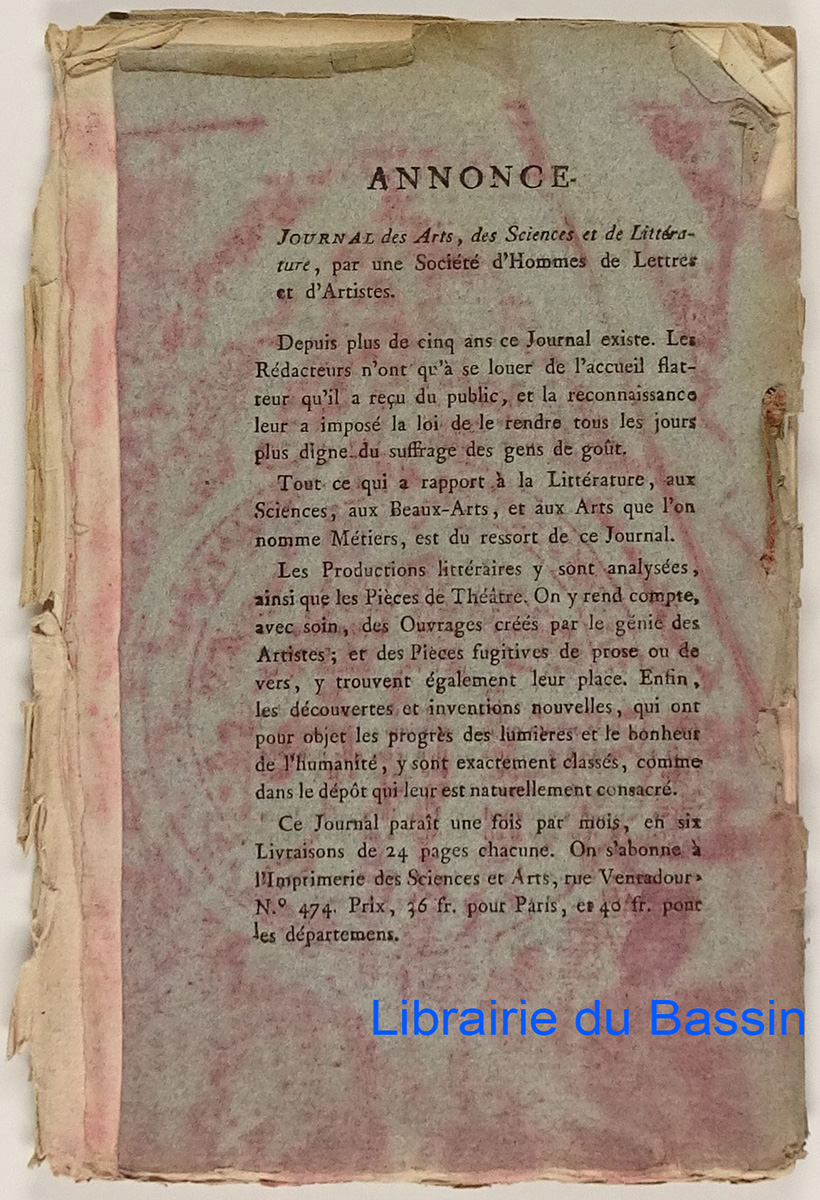 ANNONCE.
JOURNAL des Arts, des Sciences et de Littéra-
ture, par une Société d'Hommes de Lettres
et d'Artistes.
Depuis plus de cinq ans ce Journal existe. Les
Rédacteurs n'ont qu'à se louer de l'accueil flat-
teur qu'il a reçu du public, et la reconnaissance
leur a imposé la loi de le rendre tous les jours
plus digne du suffrage des gens de goût.
Tout ce qui a rapport à la Littérature, aux
Sciences, aux Beaux-Arts, et aux Arts que l'on
nomme Métiers, est du ressort de ce Journal.
Les Productions littéraires y sont analysées,
ainsi que les Pièces de Théâtre. On y rend compte,
avec soin, des Ouvrages créés par le génie des
Artistes; et des Pièces fugitives de prose ou de
vers, y trouvent également leur place. Enfin,
les découvertes et inventions nouvelles, qui ont
pour objet les progrès des lumières et le bonheur
de l'humanité, y sont exactement classés, comme
dans le dépôt qui leur est naturellement consacré.
Ce Journal paraît une fois par mois, en six
Livraisons de 24 pages chacune. On s'abonne à
l'Imprimerie des Sciences et Arts, rue Ventadour,
N.º 474. Prix, 36 fr. pour Paris, et 40 fr. pour
les départemens.
Librairie du Bassin